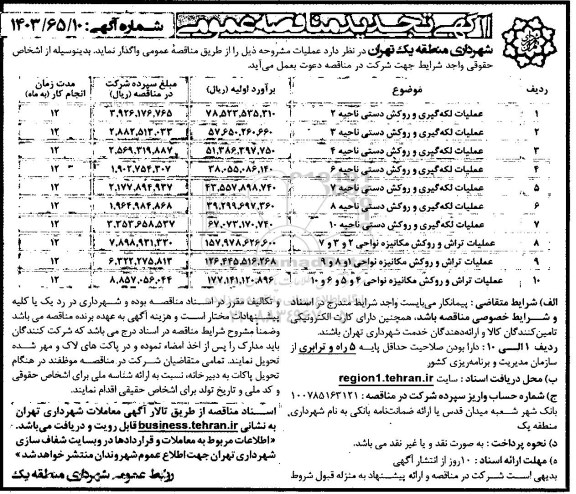 آگهی تجدید مناقصه عمومی
شماره آگهی: ۱۴۰۳/۶۵/۱۰
شهرداری منطقه یک تهران در نظر دارد عملیات مشروحه ذیل را از طریق مناقصه عمومی واگذار نماید. بدینوسیله از اشخاص
حقوقی واجد شرایط جهت شرکت در مناقصه دعوت بعمل می‌آید.
ردیف موضوع برآورد اولیه (ریال) مبلغ سپرده شرکت در مناقصه (ریال) مدت زمان انجام کار (به ماه)
۱ عملیات لکه‌گیری و روکش دستی ناحیه ۲ ۷۸,۵۲۳,۵۳۵,۳۱۰ ۳,۹۲۶,۱۷۶,۷۶۵ ۱۲
۲ عملیات لکه‌گیری و روکش دستی ناحیه ۳ ۵۷,۶۵۰,۲۶۰,۶۶۰ ۲,۸۸۲,۵۱۳,۰۳۳ ۱۲
۳ عملیات لکه‌گیری و روکش دستی ناحیه ۴ ۵۱,۳۸۶,۳۹۷,۷۵۰ ۲,۵۶۹,۳۱۹,۸۸۷ ۱۲
۴ عملیات لکه‌گیری و روکش دستی ناحیه ۶ ۳۸,۰۵۵,۰۸۶,۱۴۰ ۱,۹۰۲,۷۵۴,۳۰۷ ۱۲
۵ عملیات لکه‌گیری و روکش دستی ناحیه ۷ ۴۳,۵۵۷,۸۹۸,۷۴۰ ۲,۱۷۷,۸۹۴,۹۳۷ ۱۲
۶ عملیات لکه‌گیری و روکش دستی ناحیه ۸ ۳۹,۲۹۹,۶۹۷,۳۶۰ ۱,۹۶۴,۹۸۴,۸۶۸ ۱۲
۷ عملیات لکه‌گیری و روکش دستی ناحیه ۱۰ ۶۷,۰۷۳,۱۷۰,۷۴۰ ۳,۳۵۳,۶۵۸,۵۳۷ ۱۲
۸ عملیات تراش و روکش مکانیزه نواحی ۲ و ۳ و ۷ ۱۵۷,۹۷۸,۶۲۶,۶۰۰ ۷,۸۹۸,۹۳۱,۳۳۰ ۱۲
۹ عملیات تراش و روکش مکانیزه نواحی ۱و ۸ و ۹ ۱۲۶,۴۴۵,۵۱۶,۲۶۸ ۶,۳۲۲,۲۷۵,۸۱۳ ۱۲
۱۰ عملیات تراش و روکش مکانیزه نواحی ۴ و ۵ و ۶ و ۱۰ ۱۷۷,۱۴۱,۱۲۰,۸۹۶ ۸,۸۵۷,۰۵۶,۰۴۴ ۱۲
الف) شرایط متقاضی: پیمانکار می‌بایست واجد شرایط مندرج در اسناد
و شرایط خصوصی مناقصه باشد، همچنین دارای کارت الکترونیکی
تامین‌کنندگان کالا و ارائه‌دهندگان خدمت شهرداری تهران باشند.
ردیف ۱ الی ۱۰: دارا بودن صلاحیت حداقل پایه ۵ راه و ترابری از
سازمان مدیریت و برنامه‌ریزی کشور
ب) محل دریافت اسناد: سایت region1.tehran.ir
ج) شماره حساب واریز سپرده شرکت در مناقصه: ۱۰۰۷۸۵۱۶۳۱۲۱
بانک شهر شعبه میدان قدس یا ارائه ضمانتنامه بانکی به نام شهرداری
منطقه یک
د) نحوه پرداخت: به صورت نقد و یا غیر نقد می باشد.
ه) مهلت ارائه اسناد: ۱۰روز از انتشار آگهی
بدیهی است شرکت در مناقصه و ارائه پیشنهاد به منزله قبول شروط
و تکالیف مقرر در اسناد مناقصه بوده و شهرداری در رد یک یا کلیه
پیشنهادات مختار است و هزینه آگهی به عهده برنده مناقصه می باشد
وضمناً مشروح شرایط مناقصه در اسناد درج می باشد که شرکت کنندگان
باید مدارک را پس از اخذ امضاء نموده و در پاکت های لاک و مهر شده
تحویل نمایند. تمامی متقاضیان شرکت در مناقصه موظفند در هنگام
تحویل پاکات به دبیرخانه، نسبت به ارائه شناسه ملی برای اشخاص حقوقی
و کد ملی و تاریخ تولد برای اشخاص حقیقی اقدام نمایند.
اسناد مناقصه از طریق تالار آگهی معاملات شهرداری تهران
به نشانی business.tehran.ir قابل رویت و دریافت می‌باشد.
«اطلاعات مربوط به معاملات و قراردادها در وبسایت شفاف سازی
شهرداری تهران جهت اطلاع عموم شهروندان منتشر خواهد شد»
روابط عمومی شهرداری منطقه یک